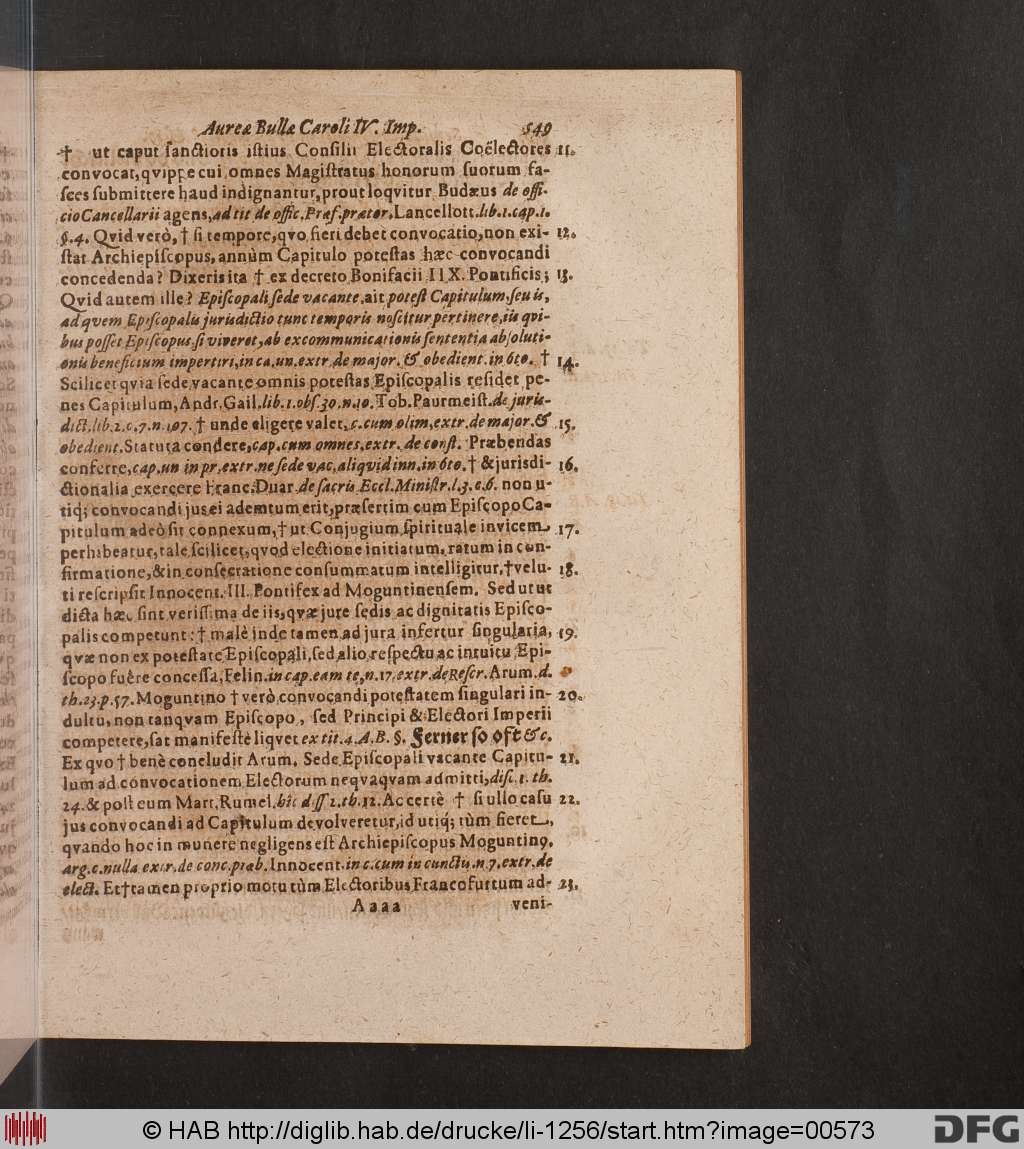 Aureæ Bullæ Caroli IV. Imp. 549
† ut caput ſanctioris iſtius Conſilii Electoralis Coëlectores 11.
convocat, qvippe cui omnes Magiſtratus honorum ſuorum fa-
ſces ſubmittere haud indignantur, prout loqvitur Budæus de offi-
cio Cancellarii agens, ad tit de offic. Præf. prætor, Lancellott. lib. 1. cap. 1.
§. 4. Qvid verò, † ſi tempore, qvo fieri debet convocatio, non exi- 12.
ſtat Archiepiſcopus, annùm Capitulo poteſtas hæc convocandi
concedenda? Dixeris ita † ex decreto Bonifacii IIX. Pontificis; 13.
Qvid autem ille? Epiſcopali ſede vacante, ait poteſt Capitulum, ſeu is,
ad qvem Epiſcopalis jurisdictio tunc temporis noſcitur pertinere, iis qvi-
bus poſſet Epiſcopus, ſi viveret, ab excommunicationis ſententia abſoluti-
onis beneficium impertiri, in ca. un. extr. de major. & obedient. in 6to. † 14.
Scilicet qvia ſede vacante omnis poteſtas Epiſcopalis reſidet pe-
nes Capitulum, Andr. Gail. lib. 1. obſ. 30. n. 10. Tob. Paurmeiſt. de juris-
dict. lib. 2. c. 7. n. 107. † unde eligere valet, c. cum olim, extr. de major. & 15.
obedient. Statuta condere, cap. cum omnes, extr. de conſt. Præbendas
conferre, cap. un in pr. extr. ne ſede vac. aliqvid inn. in 6to. † & jurisdi- 16.
ctionalia exercere Franc. Duar. de ſacris Eccl. Miniſtr. l. 3. c. 6. non u-
tiq; convocandi jus ei ademtum erit, præſertim cum Epiſcopo Ca-
pitulum adeò ſit connexum, † ut Conjugium ſpirituale invicem 17.
perhibeatur, tale ſcilicet, qvod electione initiatum, ratum in con-
firmatione, & in conſecratione conſummatum intelligitur, † velu- 18.
ti reſcripſit Innocent. III. Pontifex ad Moguntinenſem. Sed ut ut
dicta hæc ſint veriſſima de iis, qvæ jure ſedis ac dignitatis Epiſco-
palis competunt: † malè inde tamen ad jura infertur ſingularia, 19.
qvæ non ex poteſtate Epiſcopali, ſed alio reſpectu ac intuitu Epi-
ſcopo fuêre conceſſa, Felin. in cap. eam te, n. 17. extr. de Reſcr. Arum. d.
th. 23. p. 57. Moguntino † verò convocandi poteſtatem ſingulari in- 20.
dultu, non tanqvam Epiſcopo, ſed Principi & Electori Imperii
competere, ſat manifeſtè liqvet ex tit. 4. A. B. §. Ferner ſo oft &c.
Ex qvo † benè concludit Arum. Sede Epiſcopali vacante Capitu- 21.
lum ad convocationem Electorum neqvaqvam admitti, diſc. 1. th.
24. & poſt eum Mart. Rumel. hîc diſſ 2. th. 12. Ac certè † ſi ullo caſu 22.
jus convocandi ad Capitulum devolveretur, id utiq; tùm fieret,
qvando hoc in munere negligens eſt Archiepiſcopus Moguntin9.
arg. c. nulla extr. de conc. præb. Innocent. in c. cum in cunctis. n. 7. extr. de
elect. Et † tamen proprio motu tùm Electoribus Francofurtum ad- 23.
Aaaa veni-
© HAB http://diglib.hab.de/drucke/li-1256/start.htm?image=00573
DFG